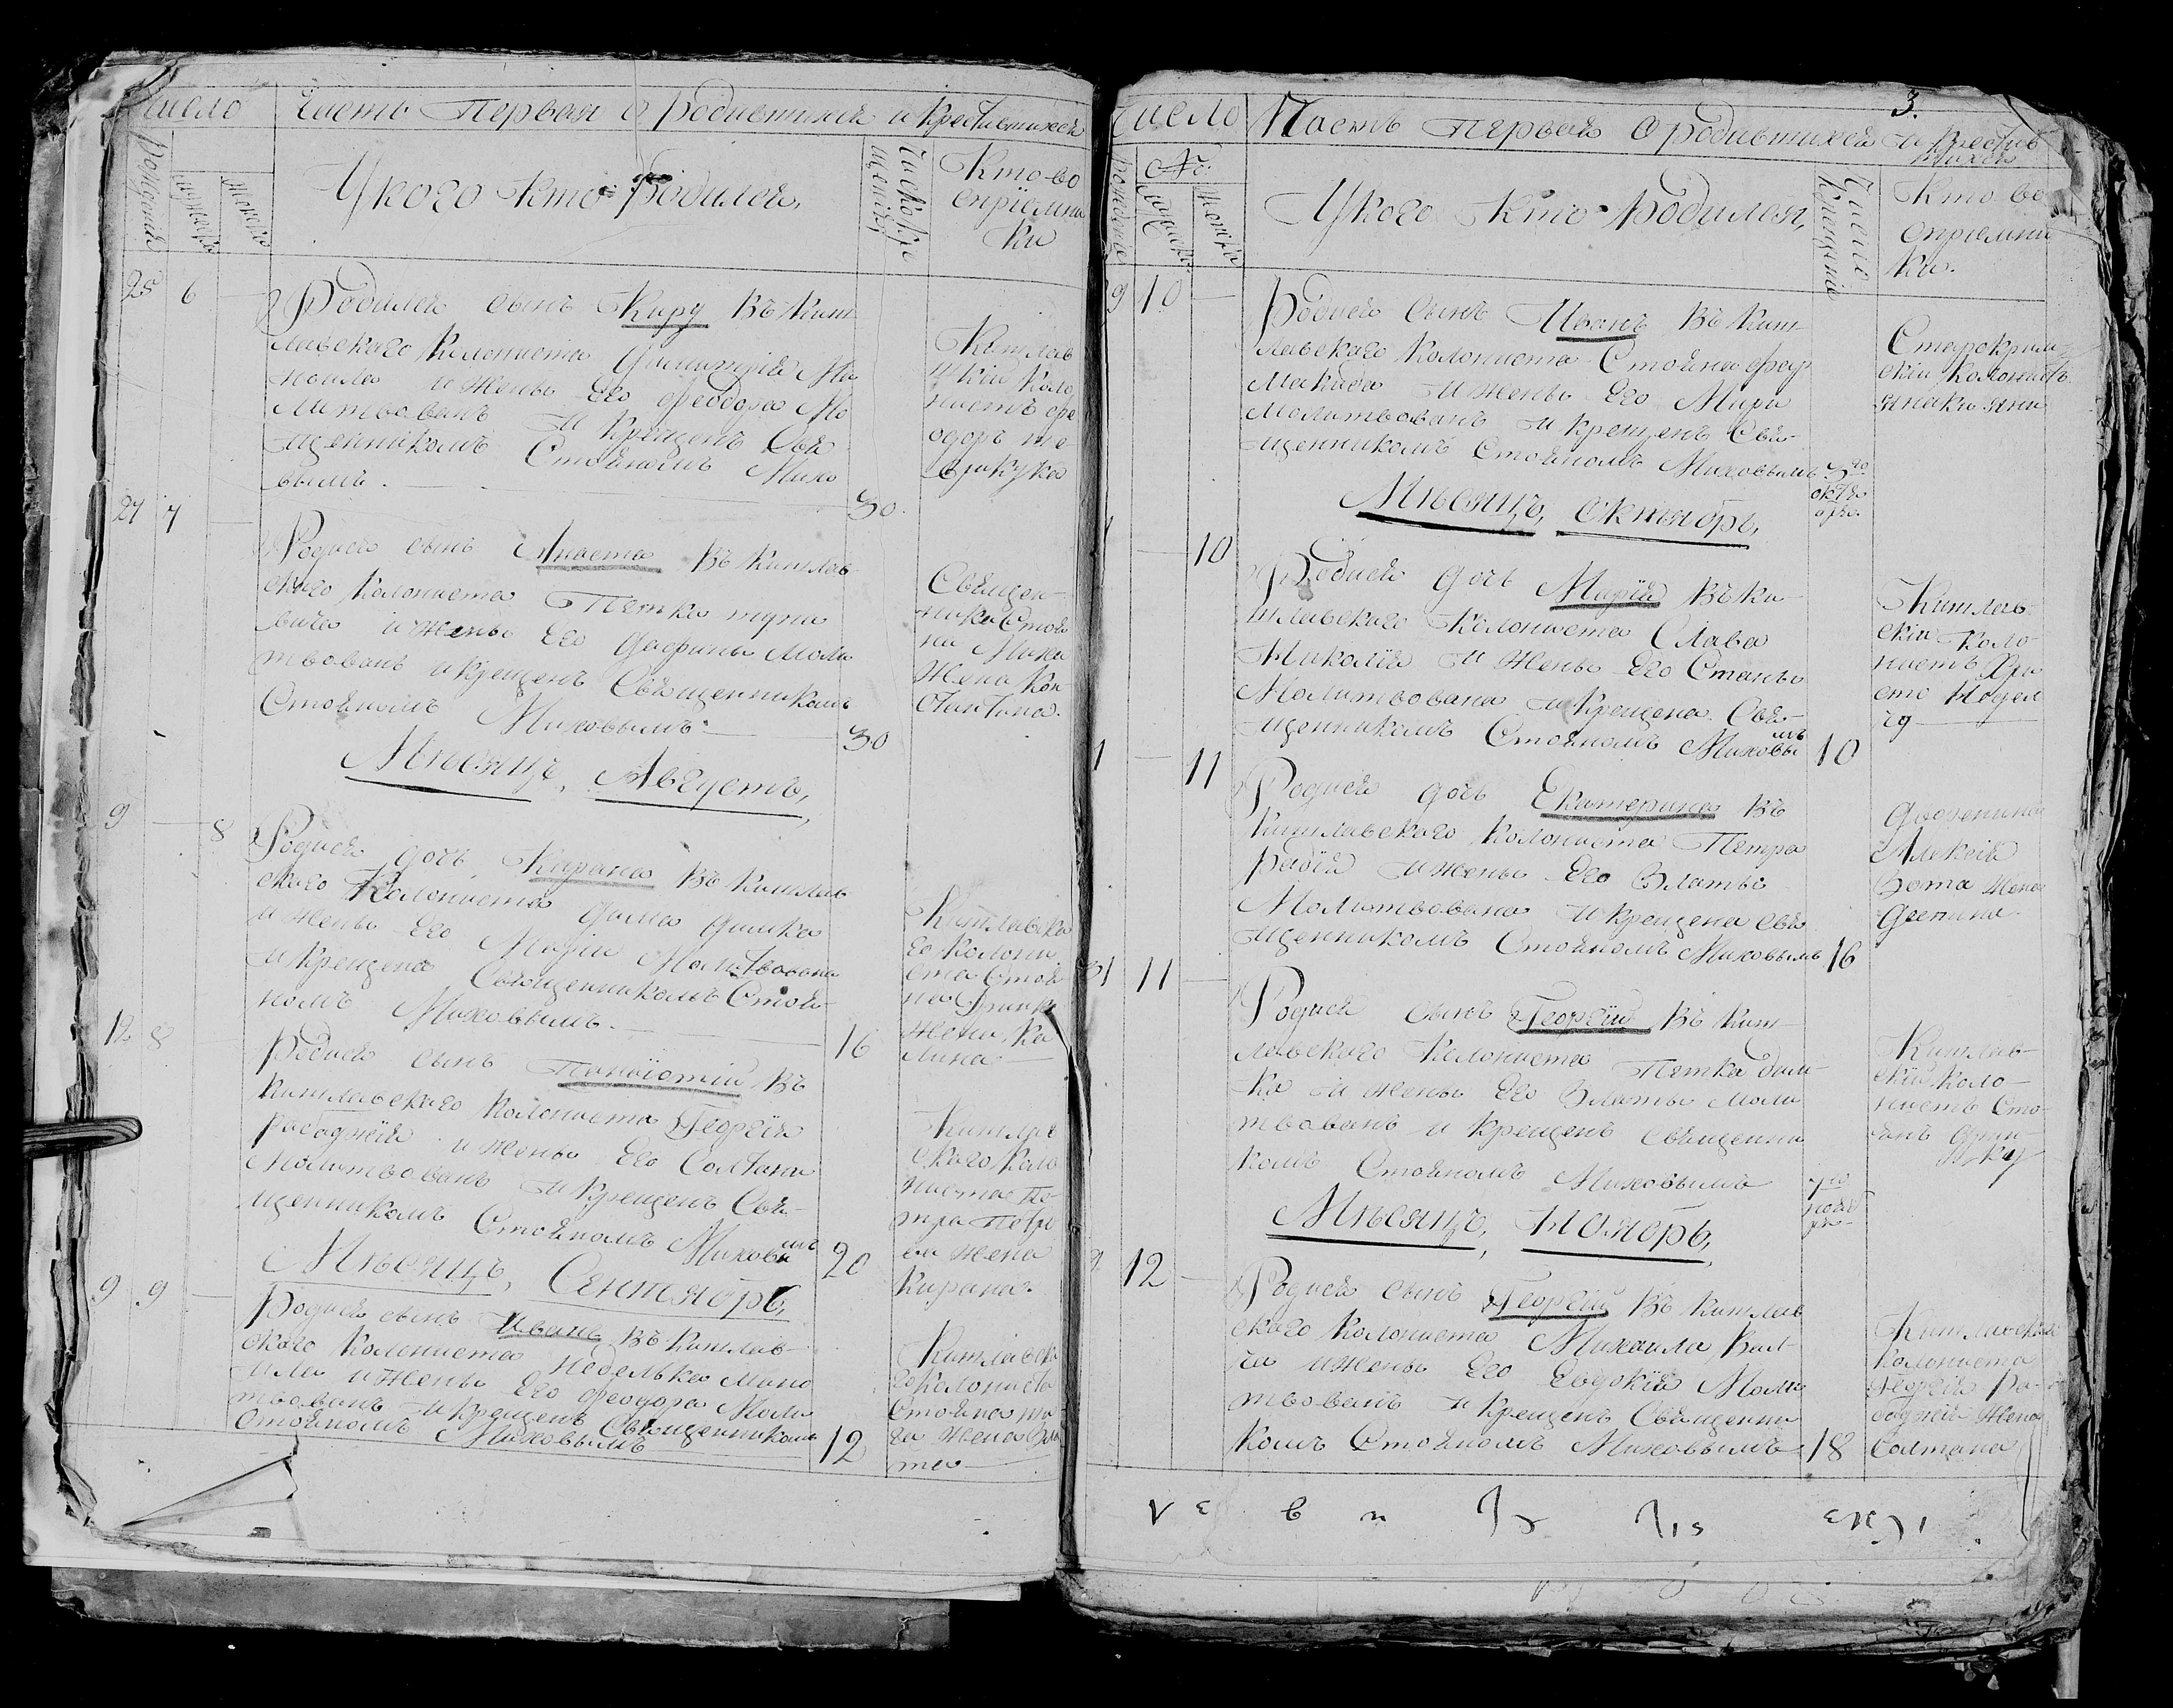 Число Часть Первая о родившихся и крестившихся
рождения
мужеска
женска
У кого кто родился,
Число кре
щенія,
Кто во
спріемни
ки
28 6
Родился сынъ Киру въ Киш
лавскаго колониста Димитрія Ма
ноила и жены его Феодора Мо
литвованъ и крещенъ Свя
щенникомъ Стояномъ Михо
вымъ. 30.
Кишлав
скій коло
нистъ Фе
одоръ
27 7
Родися сынъ Анаста въ Кишлав
скаго колониста Петка
вича и жены его Дафины Моли
твованъ и крещенъ Священникомъ
Стояномъ Миховымъ 30
Священ
ника Стоя
на Миха
жена Кон
стантина.
Мѣсяцъ, Августъ,
9 — 8
Родися дочь Кирана въ Кишлав
скаго Колониста Дима Димка
и жены его Марiи Молитвована
и крещена Священникомъ Стоя
номъ Миховымъ. 16
Кишлавска
го колони
ста Стоя
на
жена Ка
лина
12 8
Родися сынъ Панаiотiй въ
Кишлавскаго колониста Георгiя
Рабаджiя и жены его Солтаны
Молитвованъ и крещенъ Свя-
щенникомъ Стояномъ Миховы
мъ 20
Кишлав
скаго коло
ниста Пе
тра Петро
ва жена
Кирана.
Мѣсяцъ, Сентябрь,
9 9
Родися сынъ Иванъ въ Кишлав-
скаго колониста Неделька Мано
ила и жены его Феодора Моли
твованъ и крещенъ Священникомъ
Стояномъ Миховымъ 12
Кишлавска
го колониста
Стояна
жена Зла
та
3.
Число Часть первая о родившихся и крестив
шихся
рождения
№:
мужеска
женска
У кого кто родился,
Число
Крещения
Кто во
спріемни
ки.
9 10 —
Родися сынъ Иванъ въ Киш-
лавскаго колониста Стояна
и жены его Мары
Молитвованъ и крещенъ Свя-
щенникомъ Стояномъ Миховымъ 3го
октя
бря.
Старокрим-
скiй колонистъ
Мѣсяцъ, октябрь,
1 — 10
Родися дочь Марiя въ Ки-
шлавскаго колониста Слава
Николiя и жены его Станы
Молитвована и крещена Свя-
щенникомъ Стояномъ Миховы
мъ 10
Кишлав-
скiй коло
нистъ Хри
сто Недел
чу
1 — 11
Родися дочь Екатерина въ
Кишлавскаго колониста Петра
Радiя и жены его Златы
Молитвована и крещена Свя
щенникомъ Стояномъ Миховымъ 16
Дворянина
Алексiя
Зота жена
Деспина.
31 11 —
Родися сынъ Георгiй въ Киш-
лавскаго колониста Петка Дим-
ка и жены его Златы Моли
твованъ и крещенъ Священни
комъ Стояномъ Миховымъ 7го
нояб
ря
Кишлав-
скiй коло-
нистъ Сто-
янъ
Мѣсяцъ, Ноябрь,
12 —
Родися сынъ Георгiй въ Кишлав
скаго колониста Михаила Вал-
ча и жены его Евдокiя Моли
твованъ и крещенъ Священни
комъ Стояномъ Миховымъ 18
Кишлавскаго
колониста
Георгiя Ра-
баджiя жена
Солтана